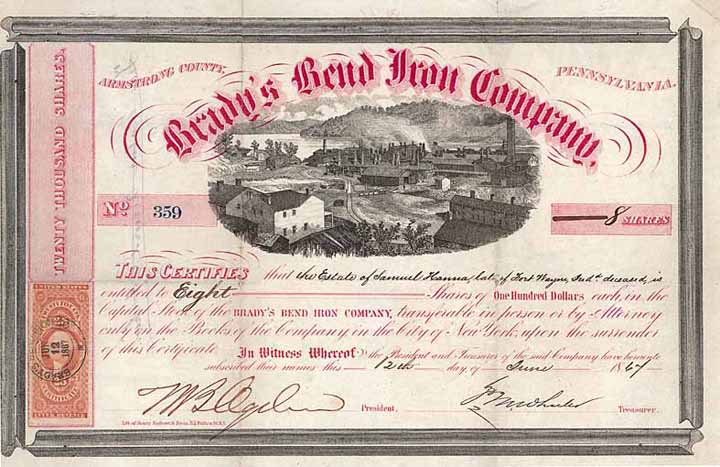 ARMSTRONG COUNTY.
PENNSYLVANIA.
Brady's Bend Iron Company.
TWENTY THOUSAND SHARES.
No 359
8 SHARES
THIS CERTIFIES that the Estate of Samuel Hanna, late of Fort Wayne, Ind^a deceased, is
entitled to Eight Shares of One Hundred Dollars each, in the
Capital Stock of the BRADY'S BEND IRON COMPANY, transferable in person or by Attorney
only on the Books of the Company in the City of New York, upon the surrender
of this Certificate. In Witness Whereof the President and Treasurer of the said Company have hereunto
subscribed their names this 12th day of June 1867
W B Ogden President. Treasurer.
12
1867
BRADYS